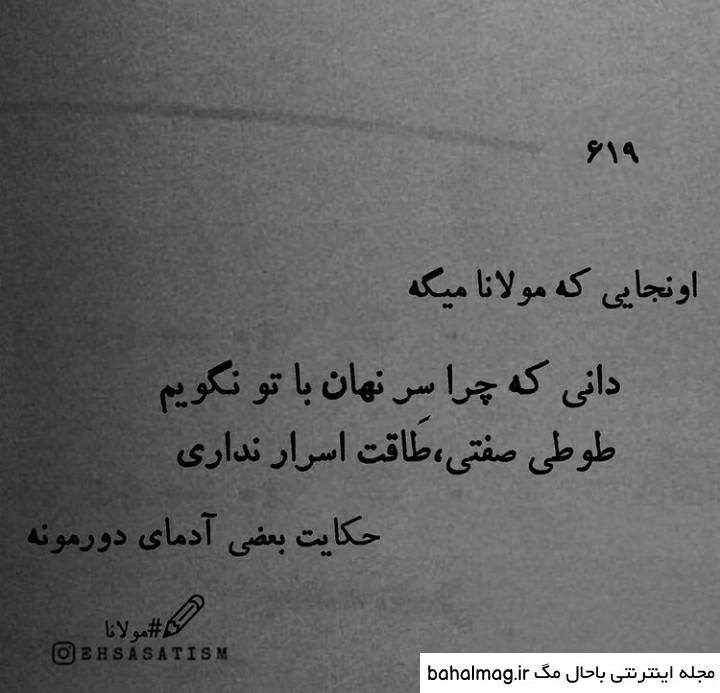 ۶۱۹
اونجایی که مولانا میگه
دانی که چرا سِر نهان با تو نگویم
طوطی صفتی،طَاقت اسرار نداری
حکایت بعضی آدمای دورمونه
#مولانا
EHSASATISM
مجله اینترنتی باحال مگ bahalmag.ir